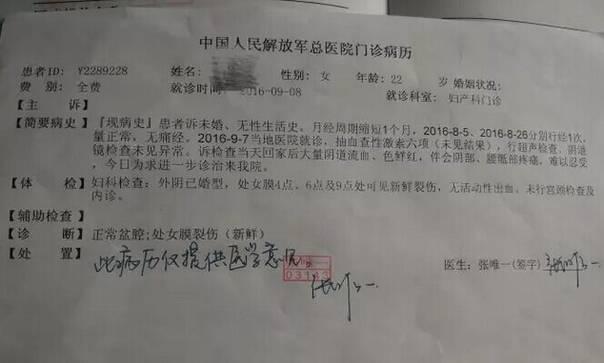 中国人民解放军总医院门诊病历
患者ID: Y2289228 姓名: 性别: 女 年龄: 22 岁 婚姻状况:
费 别: 全费 就诊时间 2016-09-08 就诊科室: 妇产科门诊
【主 诉】
【简要病史】『现病史』患者诉未婚、无性生活史。月经周期缩短1个月,2016-8-5、2016-8-26分别行经1次,
量正常,无痛经。2016-9-7当地医院就诊,抽血查性激素六项(未见结果),行超声检查、阴道
镜检查未见异常。诉检查当天回家后大量阴道流血、色鲜红,伴会阴部、腰骶部疼痛,难以忍受
,今日为求进一步诊治来我院。
【体 检】妇科检查:外阴已婚型,处女膜4点、6点及9点处可见新鲜裂伤,无活动性出血。未行宫颈检查及
内诊。
【辅助检查】
【诊 断】正常盆腔;处女膜裂伤(新鲜)
【处 置】此病历仅提供医学意见
03183
医生: 张唯一(签字) 张唯一
张唯一